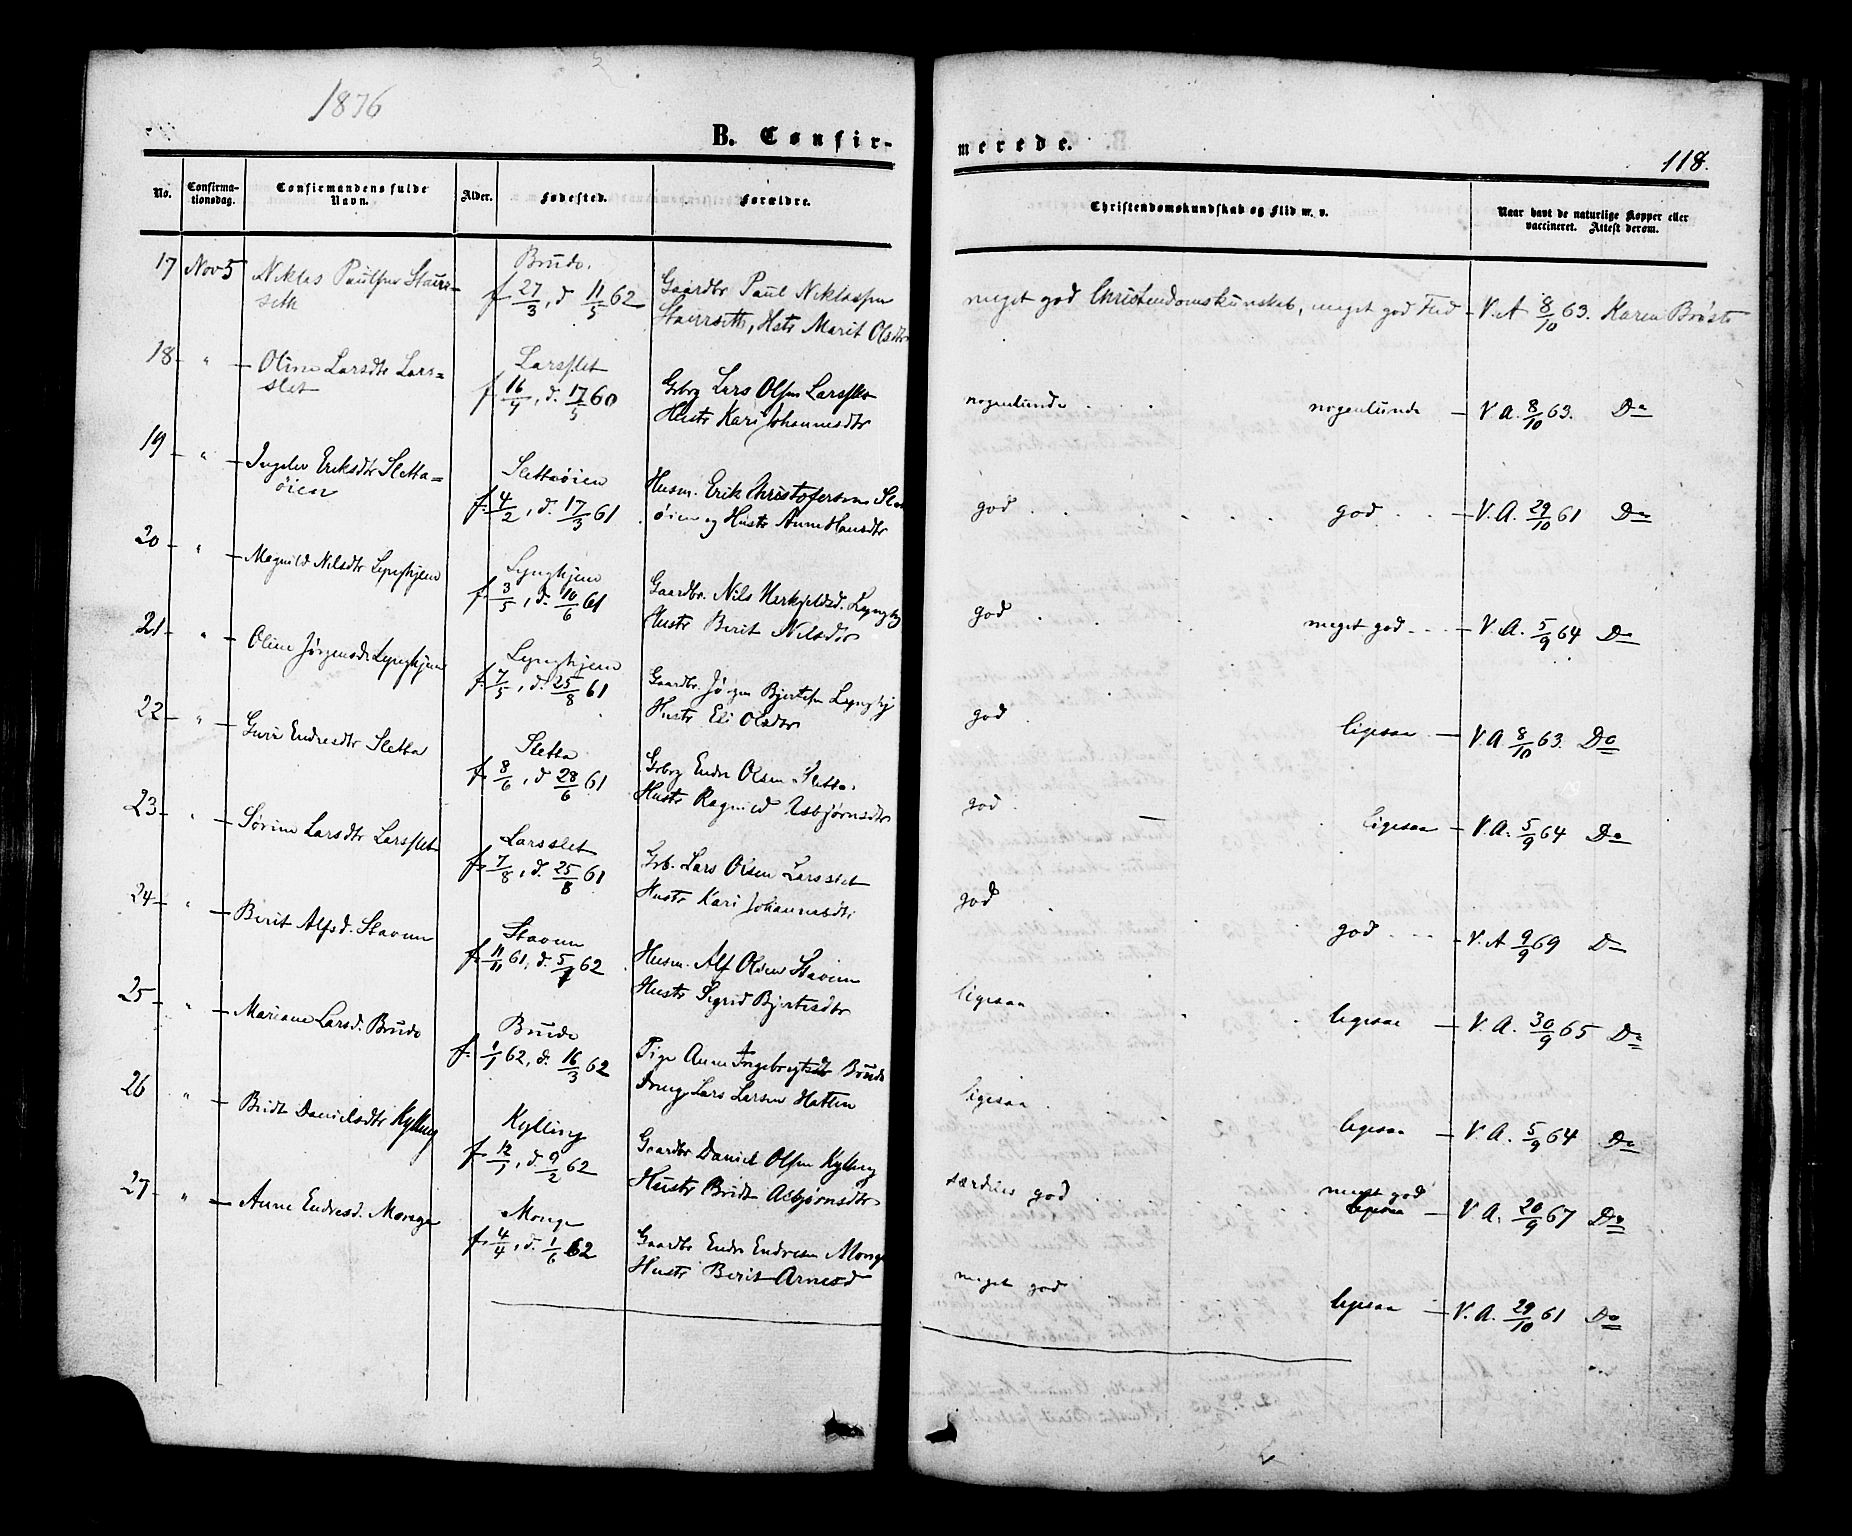 1876
B. Confir-
merede.
118.
No.
Confirma-
tionsdag.
Confirmandens fulde
Navn.
Alder.
Fødested.
Forældre.
Christendomskundskab og Flid m. v.
Naar havt de naturlige Kopper eller
vaccineret. Attest derom.
17 Nov 5 Niklas Paulsen Stavr-
seth
Brude.
f 27/3, d 11/5 62
Gaardbr Paul Niklassen
Hstr Marit Olsdtr
meget god Christendomskunskab, meget god Flid - V. A 8/10 63. Karen Brøste
18 " Oline Larsdtr Lars-
slet
Larsslet
f 16/4, d. 17/5 60
Lars Olsen Larsslet
Hustr Kari Johannesdtr
nogenlunde . . nogenlunde - V. A. 8/10 63. Do
19 " Eriksdtr Sletta-
øien
Slettaøien
f. 4/2, d. 17/3 61
Husm. Erik Christofersen
øien og Hustr Anne Hansdtr
god . . . god - V. A. 29/10 61 Do
20 " Magnild Nilsdtr Lynghjem
Lynghjem
f. 3/5, d. 10/6 61
Gaardbr. Nils
Hustr Berit Nilsdtr
god . . meget god - V. A. 5/9 64 Do
21 " Oline Jørgensdr Lynghjem
Lynghjem
f. 7/5, d. 25/8 61
Gaardbr. Jørgen Lynghj
Hustr Eli Olsdtr
god . ligesaa - V. A 8/10 63. Do
22 " Guri Endresdtr Sletta
Sletta
f. 8/6, d 28/6 61
Endre Olsen Sletta.
Hustr Ragnild Asbjørnsdtr
god . ligesaa - V. A. 5/9 64 Do
23 " Sørine Larsdtr Larsslet
Larsslet
f. 7/8, d. 25/8 61
Grb. Lars Olsen Larsslet
Hustr Kari Johannesdtr
god . god - V. A 9/9 69 Do
24 " Berit Alfsd. Stavem
Stavem
f. 11/11 61, d. 62
Husm. Alf Olsen Stavem
Hustr Sigrid
ligesaa . ligesaa - V. A. 30/9 65 Do
25 " Mariane Larsd. Brude
Brude
f. 1/1 62, d. 16/3 62
Pige Anne Ingebregtsdtr Brude
Lars Larsen Hatten
ligesaa . ligesaa - V. A. 5/9 64 Do
26 " Bridt Danielsdtr Kylling
Kylling
f. 12/1, d. 9/2 62
Gaardbr Daniel Olsen Kylling
Hustr Bridt Asbjørnsdtr
særdeles god . meget god
ligesaa - V. A. 20/9 67 Do
27 " Anne Endresd. Monge
Monge
f. 4/4, d. 1/6 62
Gaardbr Endre Endresen Monge
Hustr Berit Arnesd
meget god ligesaa - V. A. 29/10 61 Do